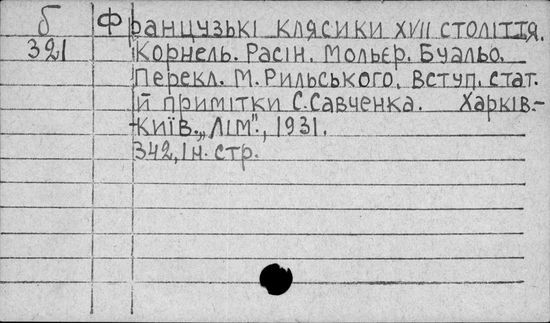 б Французькі клясики XVII століття.
321 Корнель. Расін. Мольєр. Буальо.
Перекл. М. Рильського. Вступ. стат.
й примітки С. Савченка. Харків.-
-Київ. „Лім"., 1931.
342, Ін. стр.